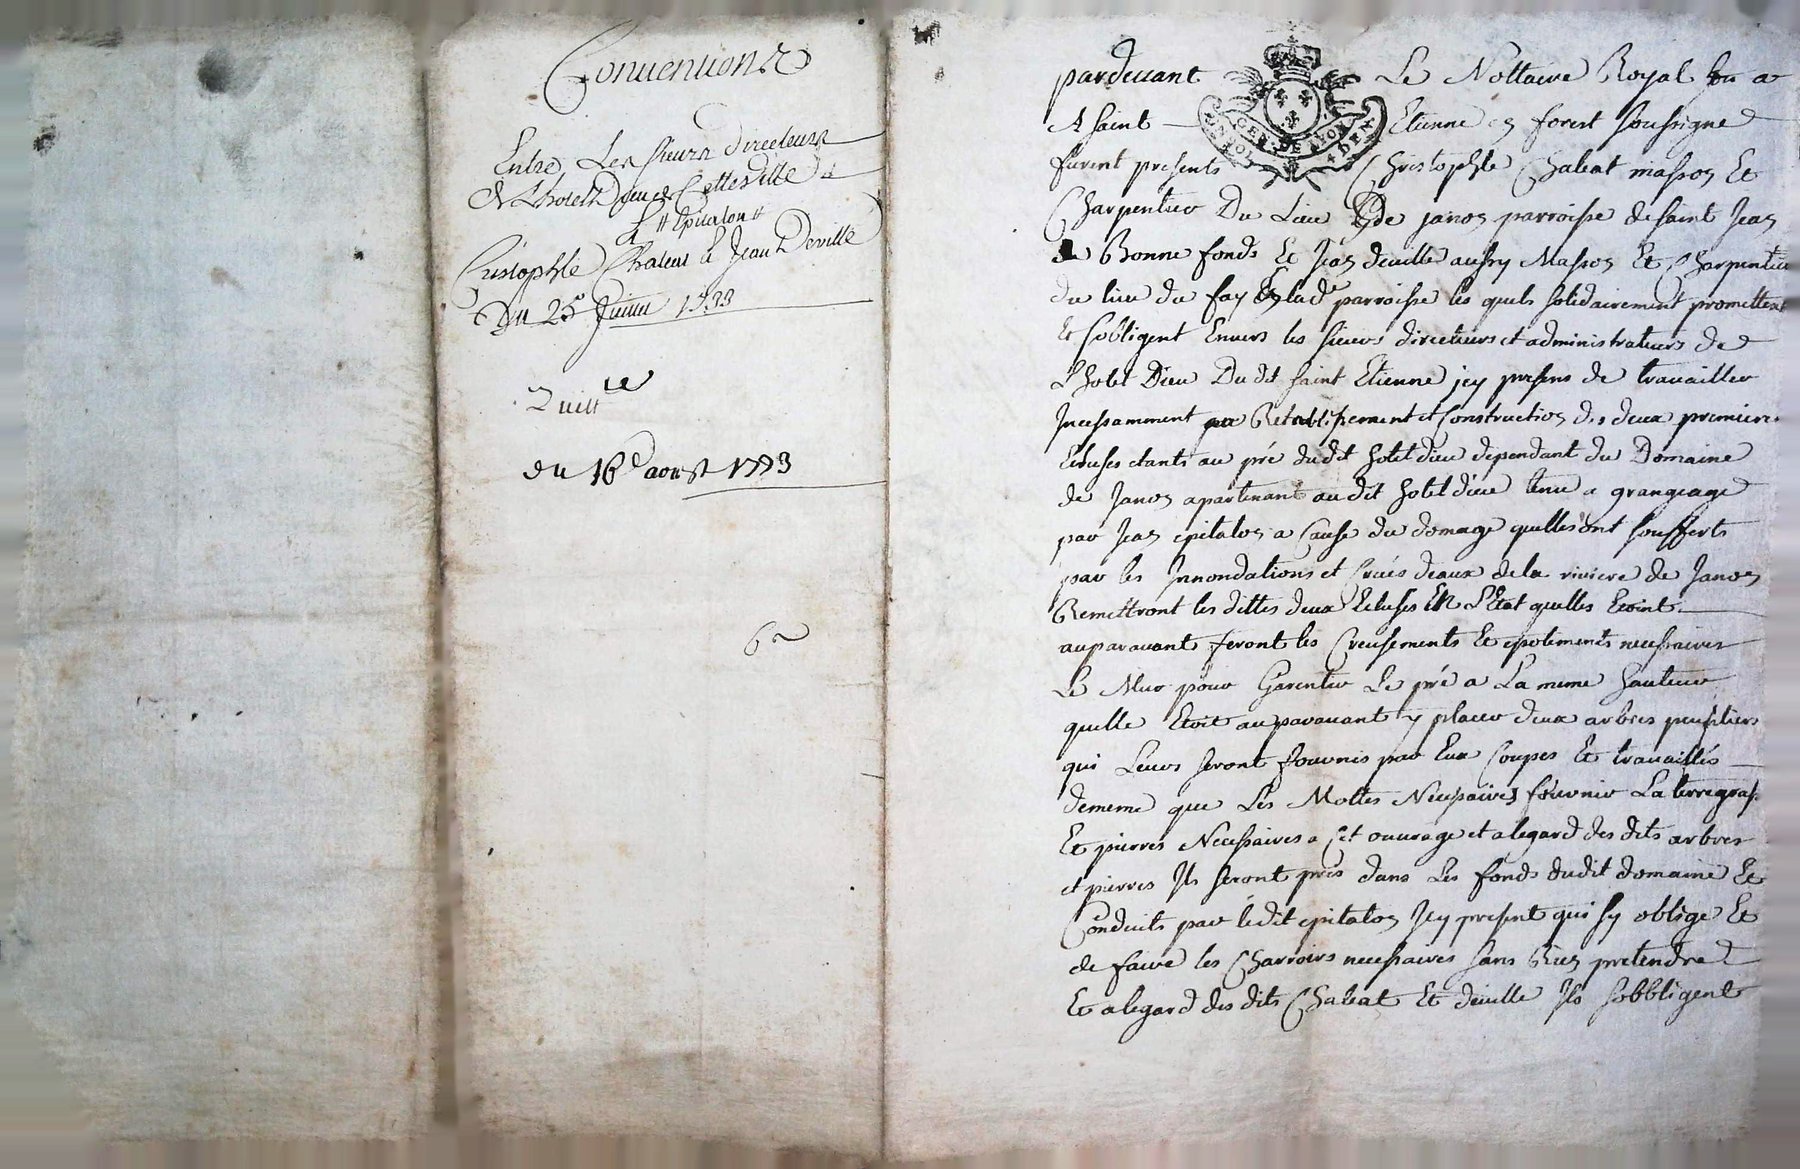 Conventions
Entre Les sieurs directeurs
de L'hotel Dieu de Cette ville &
Sr Epitalon
Cristophle Chaleat & Jean Deville
Du 25 Juin 1733
Quittce
du 16e aoust 1773
pardevant Le Nottaire Royal
A saint Etienne en forest soussigne
GEN DE LYON
furent presents Christophle Chaleat masson Et
Charpentier Du Lieu de janon parroisse de saint Jean
Bonnefonds Et Jean deville aussy Masson Et Charpentier
du lieu du fay Susde parroisse les quels solidairement promettent
Et s'obligent Envers les sieurs directeurs et administrateurs de
L'hotel Dieu Du dit saint Etienne jcy presens de travailler
Incessamment au Retablissement et Construction des deux premieres
Ecluses etants au pré dudit hotel dieu dependant du Domaine
de Janon apartenant audit hotel dieu tenu a grangeage
par Jean epitalon a Cause du domage quelles ont soufferts
par les Innondations et Crües deaux de la riviere de Janon
Remettront les dittes deux Ecluses EN L'Etat quelles Etoint
auparavant feront les Creusements Et epotements necessaires
Le Mur pour Garentir Le pré a La meme hauteur
quelle Etoit auparavant y placer deux arbres peupliers
qui Leurs seront fournis par Eux Coupes Et travaillés
dememe que Les Mottes Necessaires fournir La terre grasse
Et pierres Necessaires a cet ouvrage et alegard des dits arbres
et pierres Ils seront pris dans Les fonds dudit domaine Et
Conduits par ledit epitalon Jcy present qui sy oblige Et
de faire les Charroirs necessaires sans Rien pretendre
Et alegard des dits Chaleat Et deville Ils sobbligent